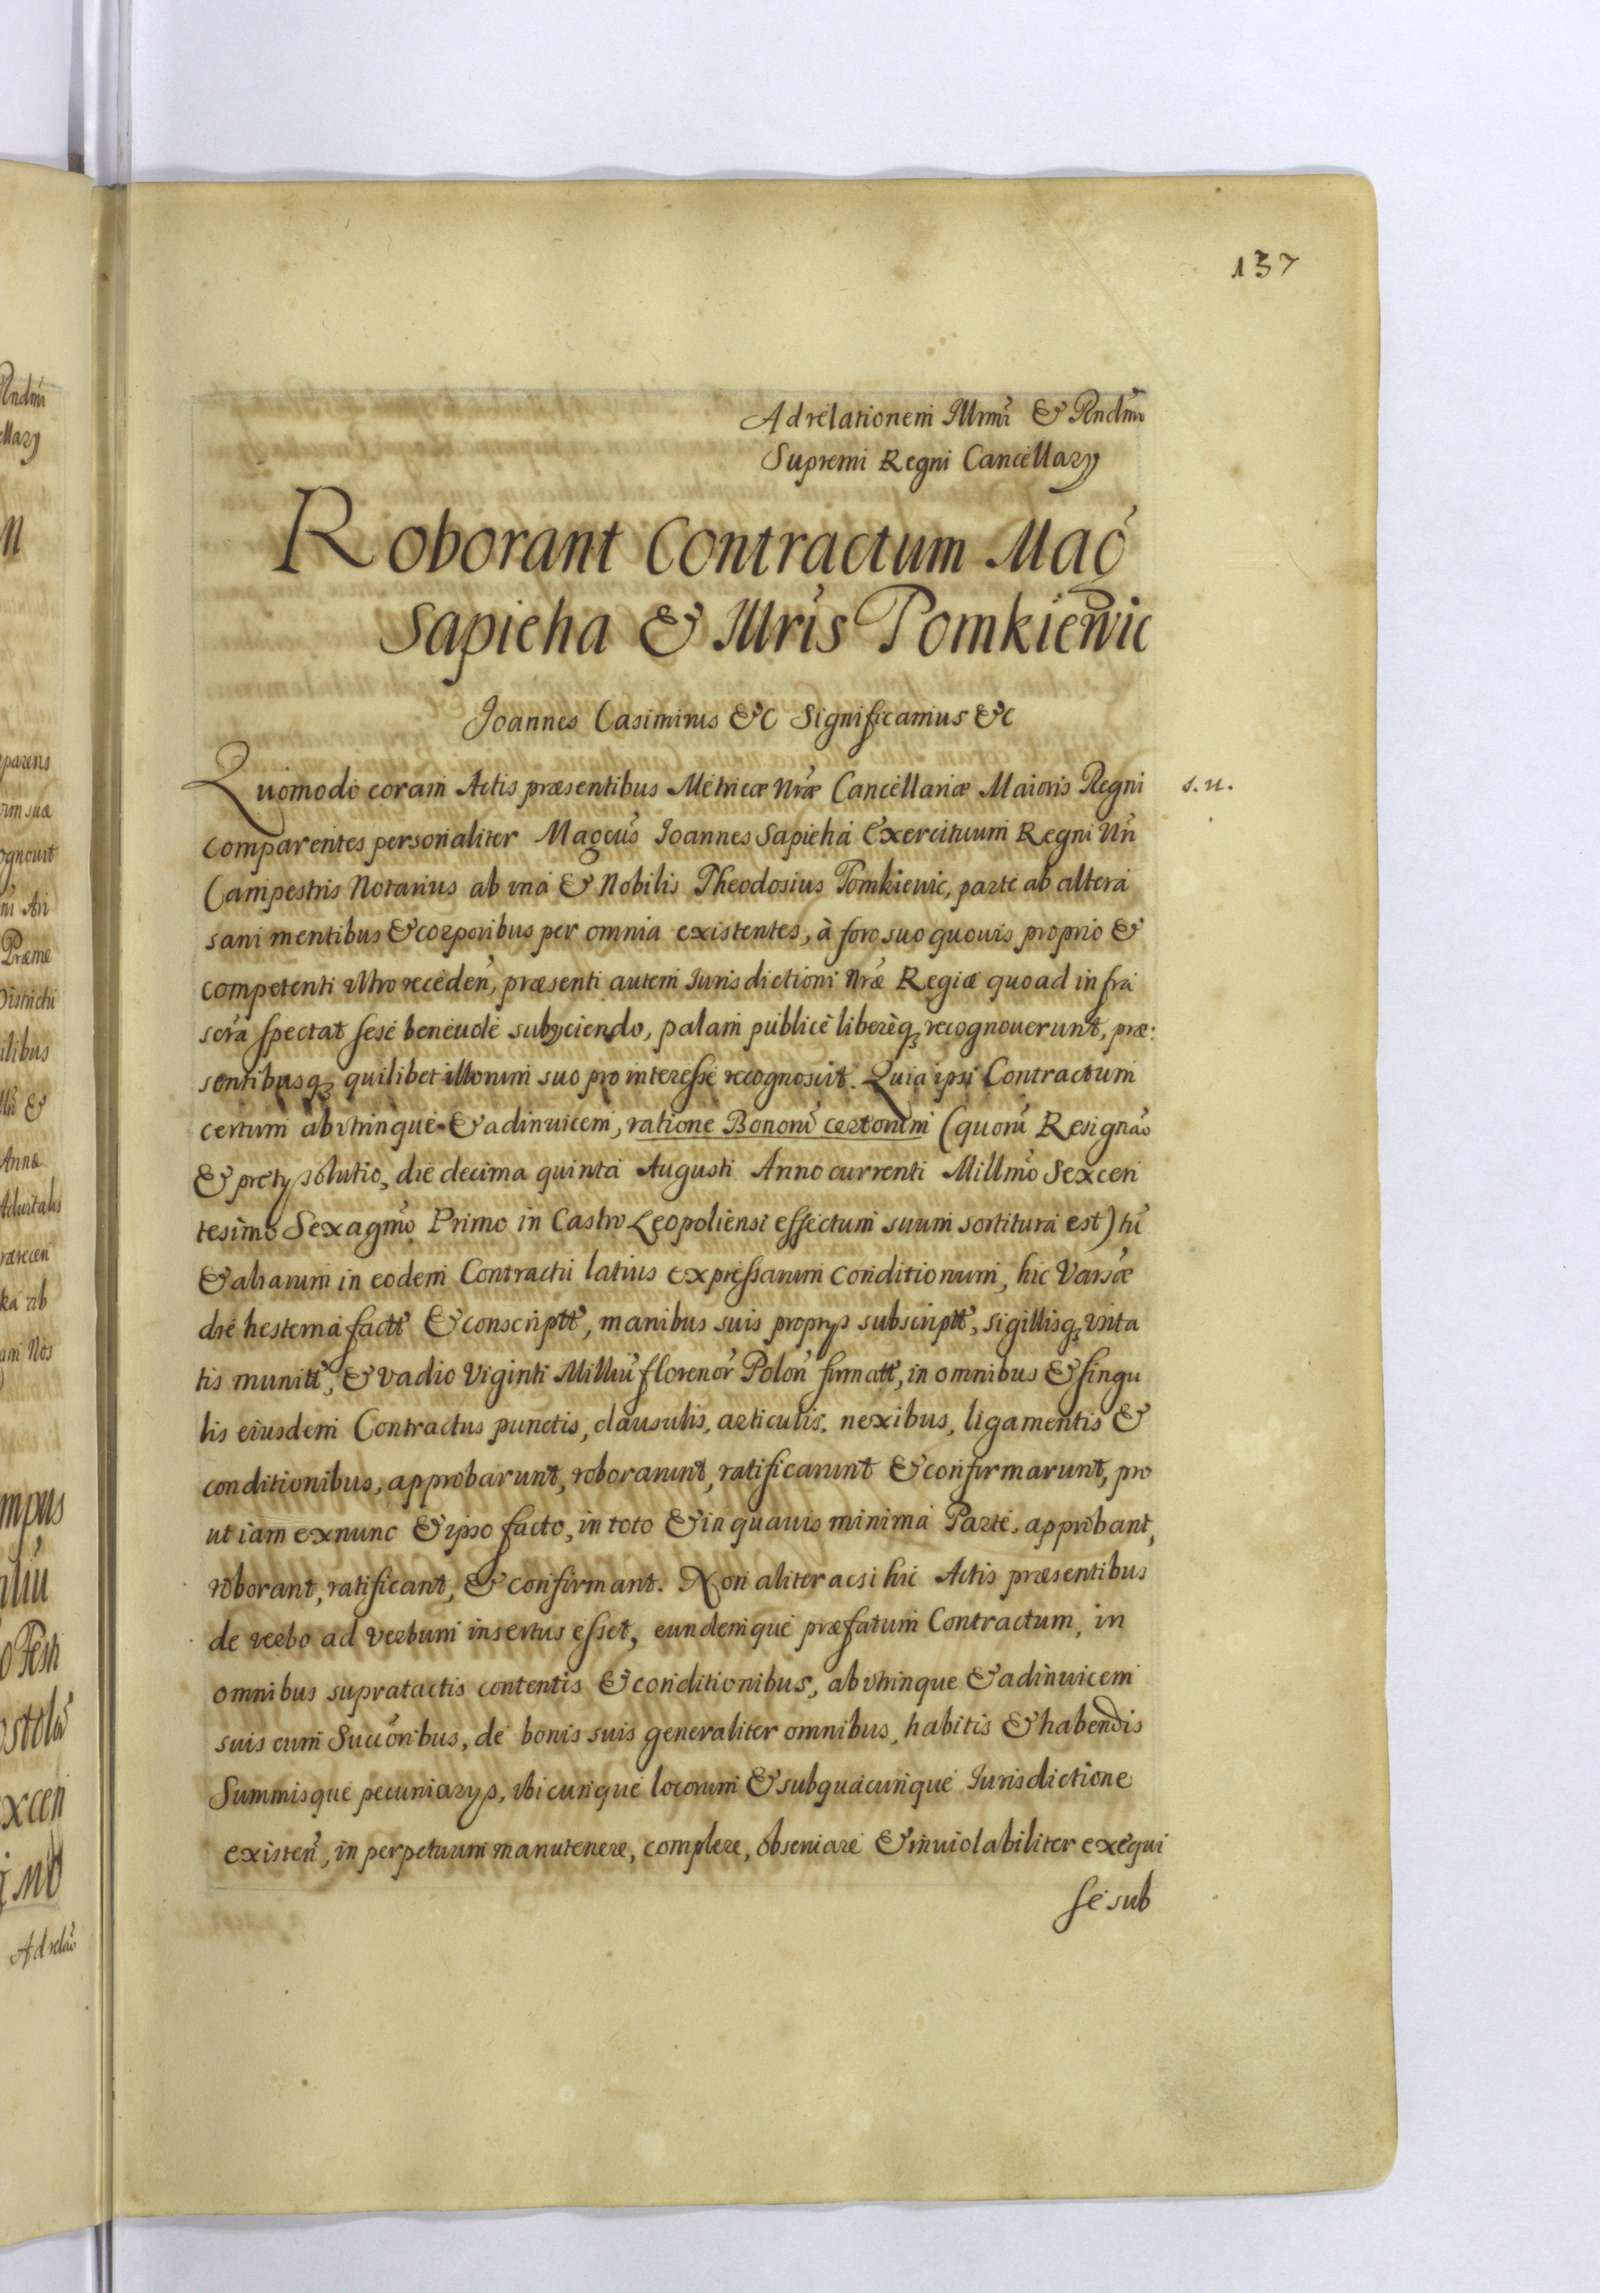 137
Ad relationem Illrmi & Rndmi
Supremi Regni Cancellarÿ
Roborant Contractum Mag
Sapieha & Illris Tomkiewic
Joannes Casimirus &c Significamus &c
Quomodo coram Actis præsentibus Metricæ Nræ Cancellariæ Maioris Regni
s. n.
comparentes personaliter Magcus Joannes Sapieha Exercituum Regni Nri
Campestris Notarius ab vna & Nobilis Theodosius Tomkiewic, parte ab altera
sani mentibus & corporibus per omnia existentes, à foro suo quouis proprio &
competenti vltro receden, præsenti autem Iurisdictioni Nræ Regiæ quoad infra
scra spectat sese beneuole subÿciendo, palam publicè liberèq recognouerunt, præ:
sentibusq quilibet illorum suo pro interesse recognoscit. Quia ipsi Contractum
certum abvtrinque & adinuicem, ratione Bonorũ certorum (quorũ Resignão
& pretÿ solutio, die decima quinta Augusti Anno currenti Millmo Sexcen
tesimo Sexagmo Primo in Castro Leopoliensi effectum suum sortitura est) tũ
& aliarum in eodem Contractu latius expressarum conditionum, hic Varsæ
die hesterna factt & conscriptt, manibus suis proprÿs subscriptt, sigillisq vsita
tis munitt, & vadio Viginti Milliũ florenor Polon firmatt, in omnibus & singu
lis eiusdem Contractus punctis, clausulis, articulis, nexibus, ligamentis &
conditionibus, approbarunt, roborarunt, ratificarunt & confirmarunt, pro
ut iam exnunc & ipso facto, in toto & in quauis minima Parte, approbant,
roborant, ratificant, & confirmant. Non aliter acsi hic Actis præsentibus
de verbo ad verbum insertus esset, eundemque præfatum Contractum, in
omnibus supratactis contentis & conditionibus, abvtrinque & adinuicem
suis cum Succoribus, de bonis suis generaliter omnibus, habitis & habendis
Summisque pecuniarÿs, vbicunque locorum & subquacunque Iurisdictione
existen, in perpetuum manutenere, complere, obseruare & inuiolabiliter exequi
se sub